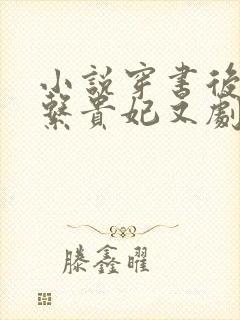 小説穿書後
繫貴妃又劇
滕鑫曜